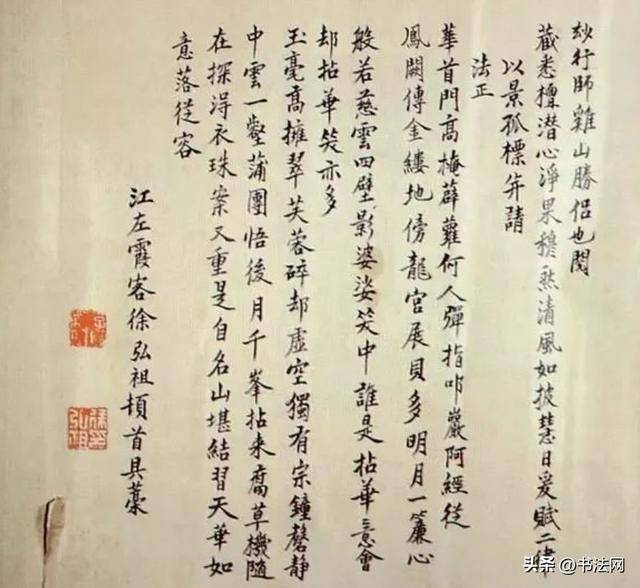 玅行師雞山勝侣也閱
藏悉檀潛心淨果穆然清風如披慧日爰賦二律
以景孤標并請
法正
華首門高掩薜蘿何人彈指叩巖阿經從
鳳闕傳金縷地傍龍宮展貝多明月一簾心
般若慈雲四壁影婆娑笑中誰是拈華意會
却拈華笑亦多
玉毫高擁翠芙蓉碎却虛空獨有宗鐘磬靜
中雲一壑蒲團悟後月千峯拈来腐草機随
在探淂衣珠案又重是自名山堪結習天華如
意落從容
江左霞客徐弘祖頓首具藁
头条 @书法网